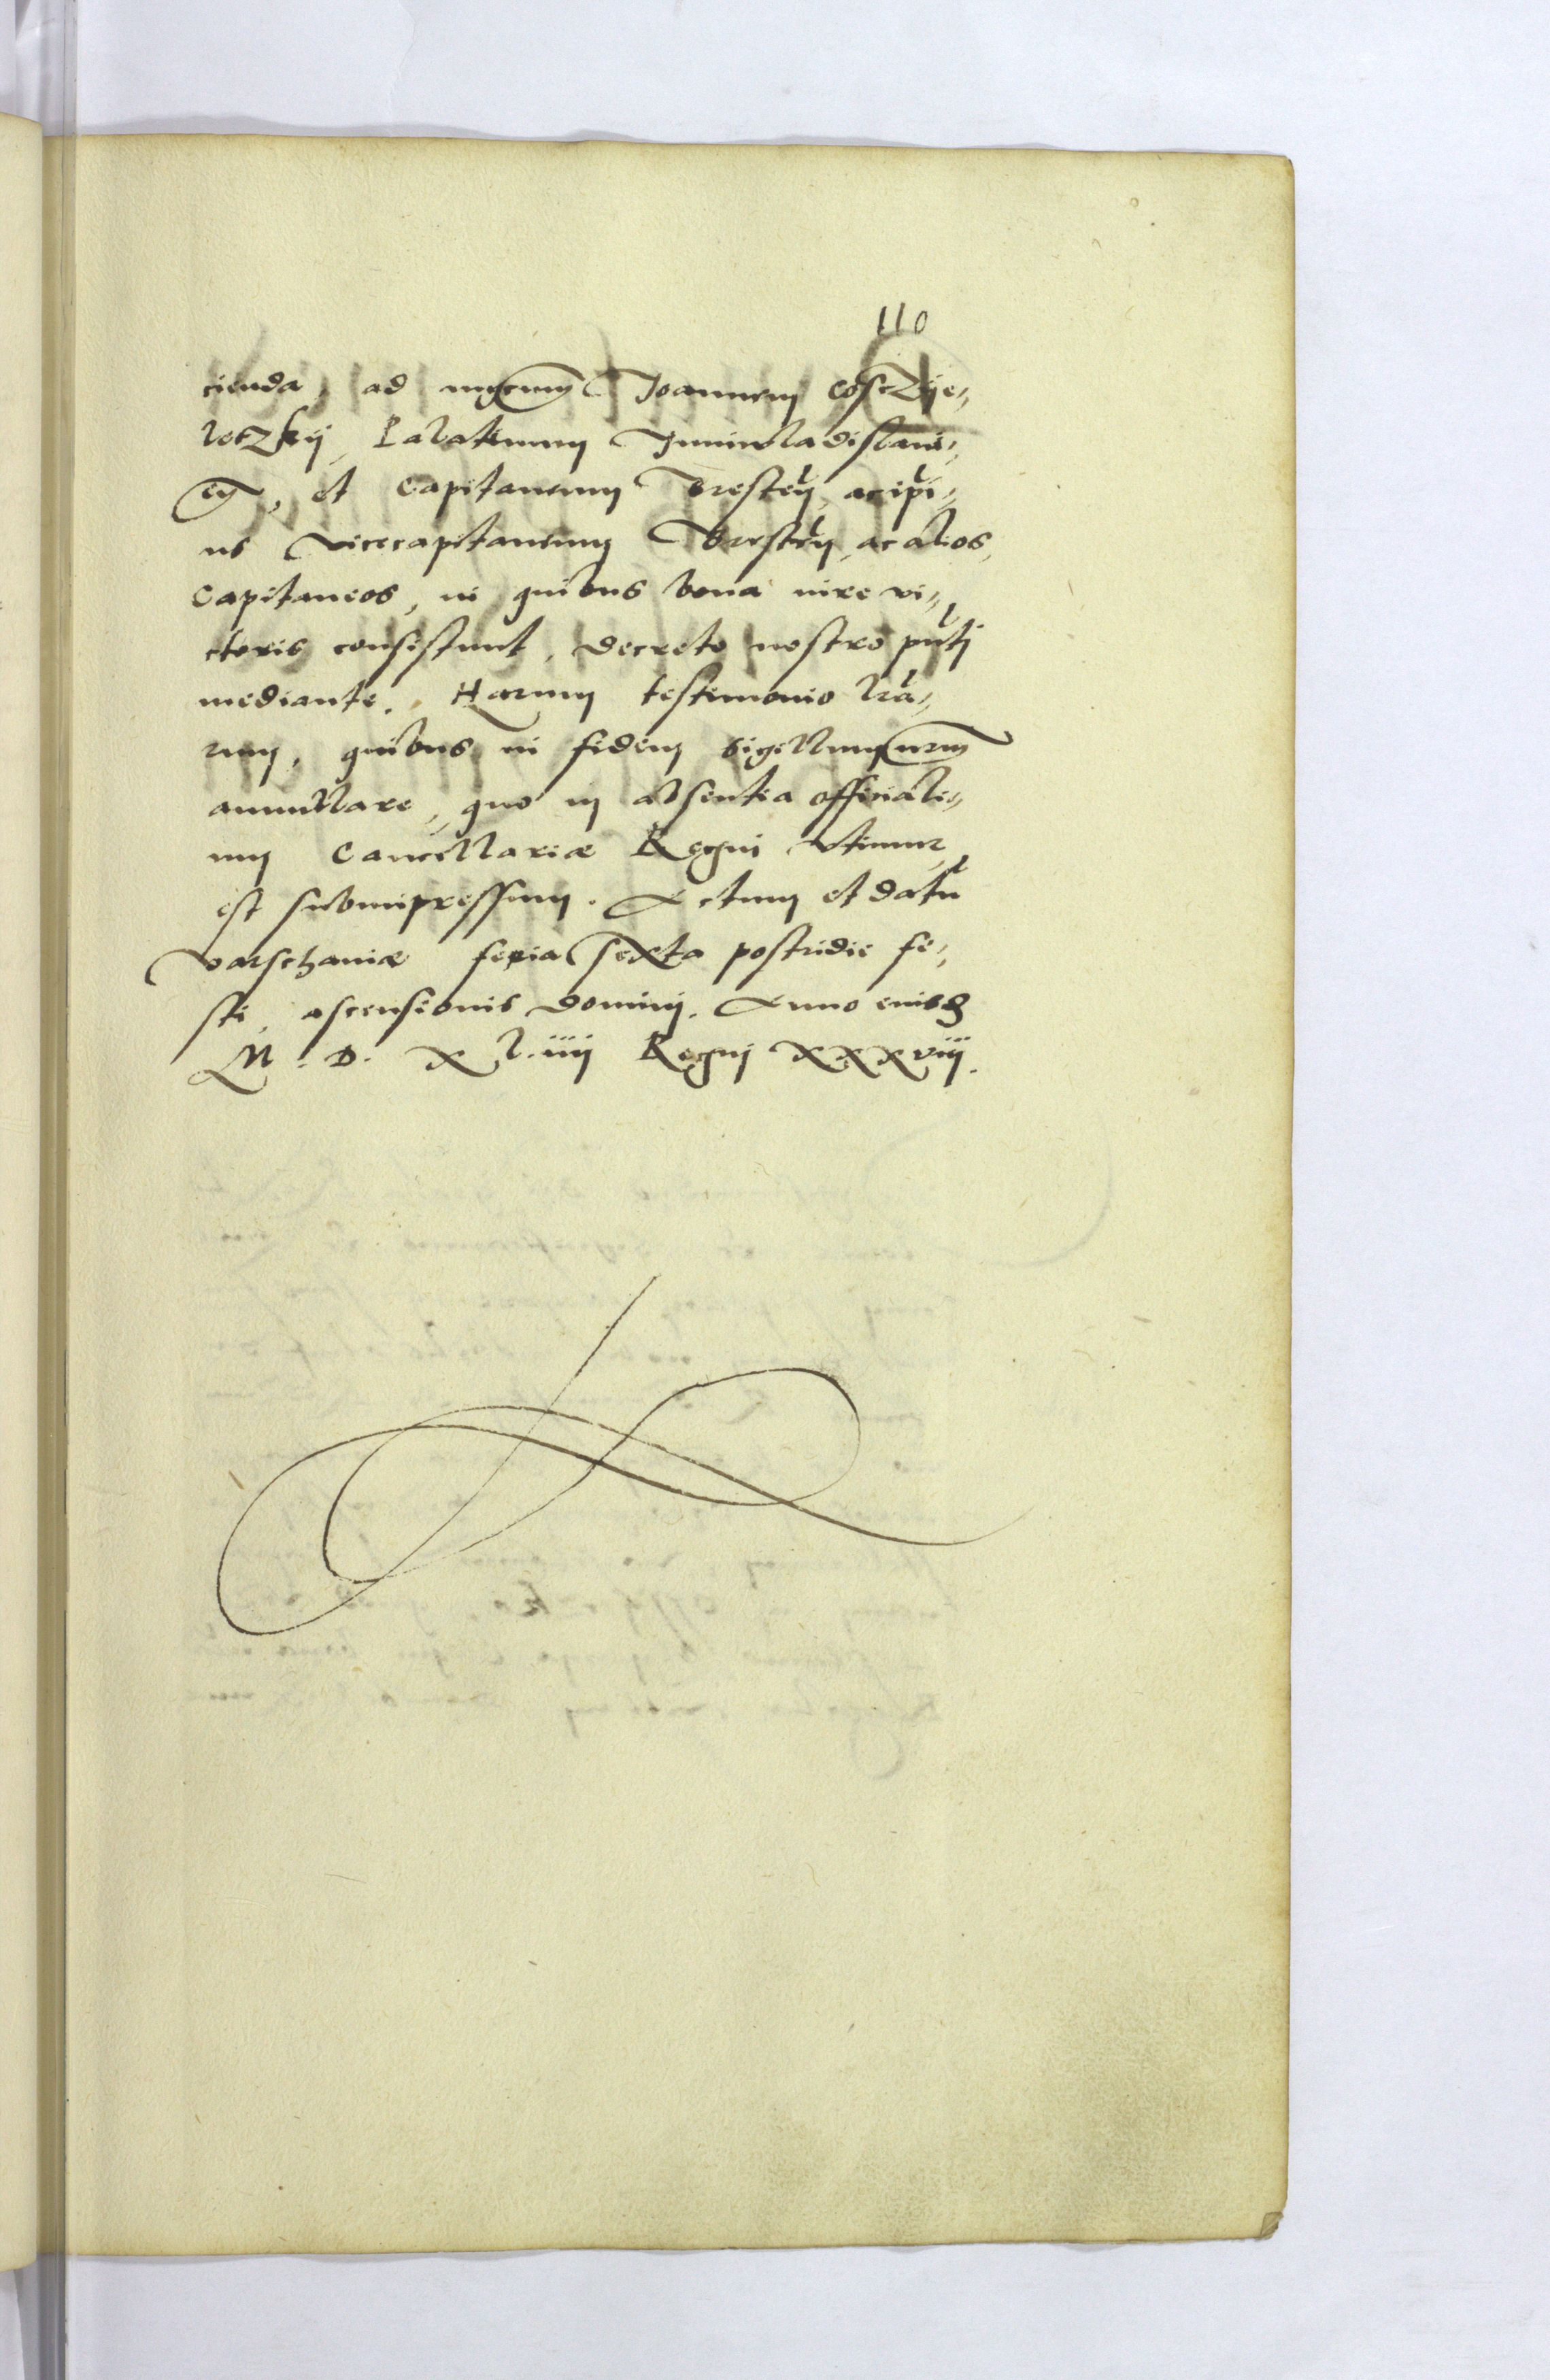 110
cienda, ad mgcum Joannem Cosczije„
leczkij, Palatinum Juniwladislaui„
eñ, et Capitaneum Bresteñ, ac ipi„
us vicecapitaneum Bresteñ, ac alios,
Capitaneos, in quibus bona iure vi„
ctoris consistunt, decreto nostro pñti
mediante. Harum testimonio lrā„
rum, quibus in fidem sigillum nrm
annullare, quo in absentia officiali„
um Cancellariæ Regni vtimur,
est subimpressum. Actum et datū
Varschaniæ feria sexta postridie fe„
sti, ascensionis dominj. Anno eiusdē
M. D. X l. iiij Regnj XXXviij.